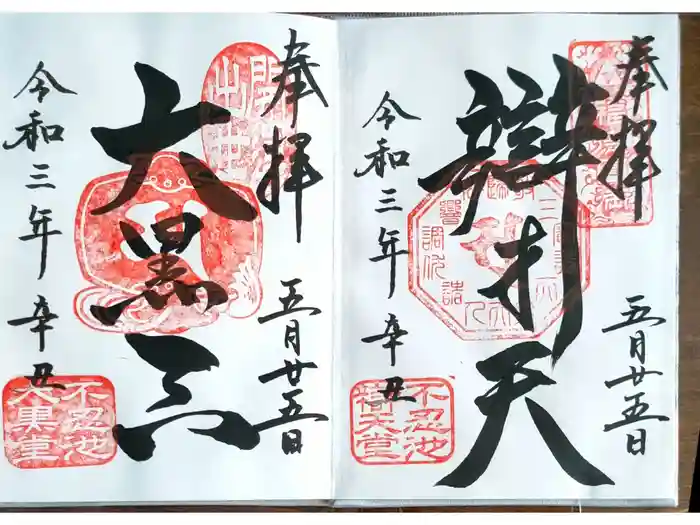 奉拝
五月廿五日
辯才天
令和三年 辛丑
不忍池
辯天堂
奉拝
五月廿五日
大黒天
令和三年 辛丑
不忍池
大黒堂